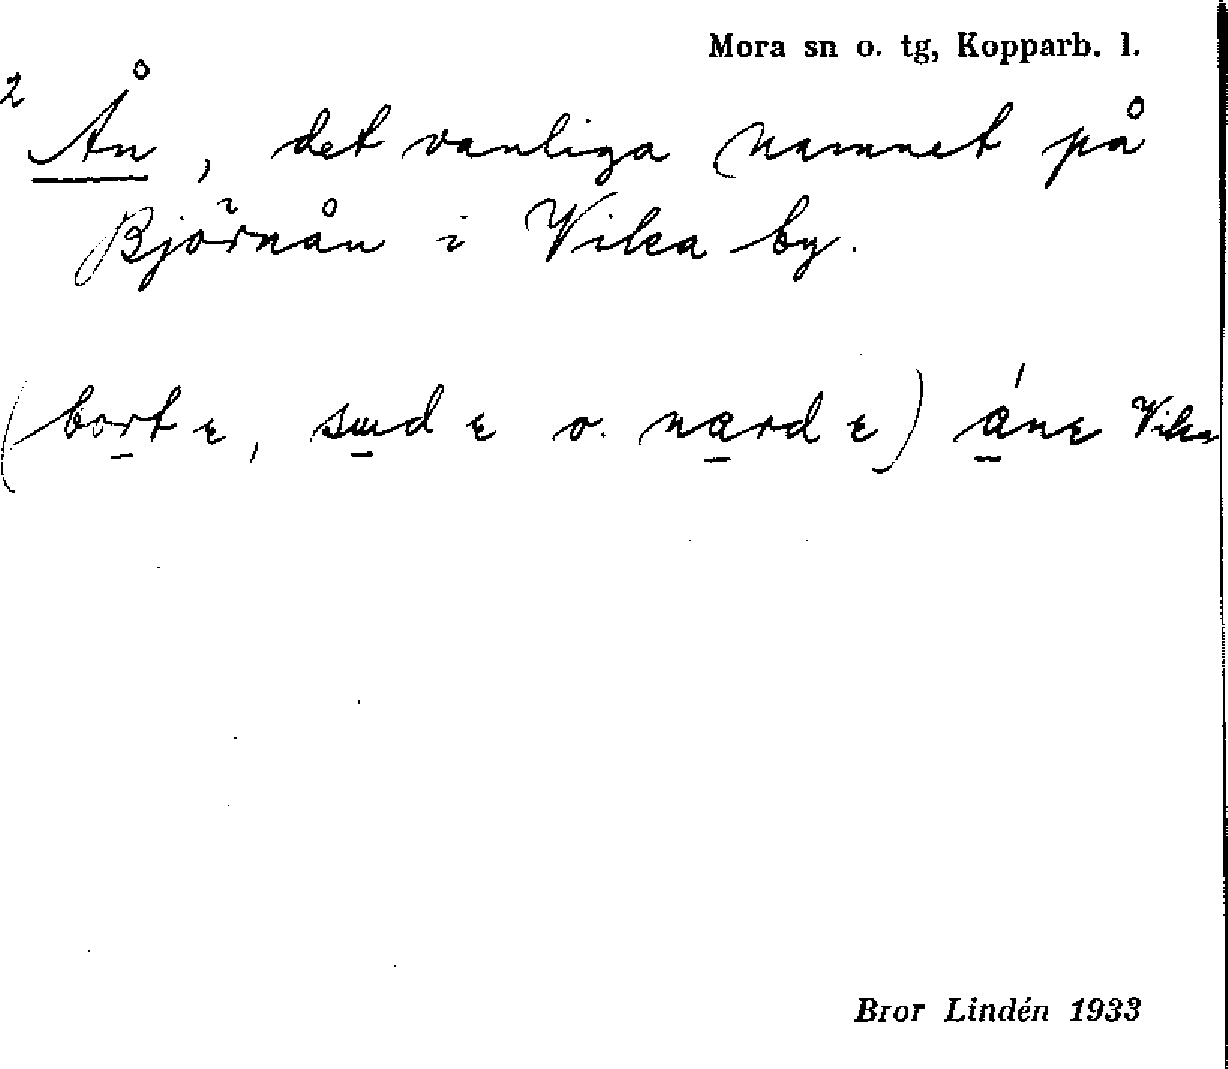 Mora sn o. tg, Kopparb. l.
2 Ån, det vanliga namnet på
Björnån i Vika by.
(bort ε, sɯd ε o. nard ε) ánε Vika
Bror Lindén 1933